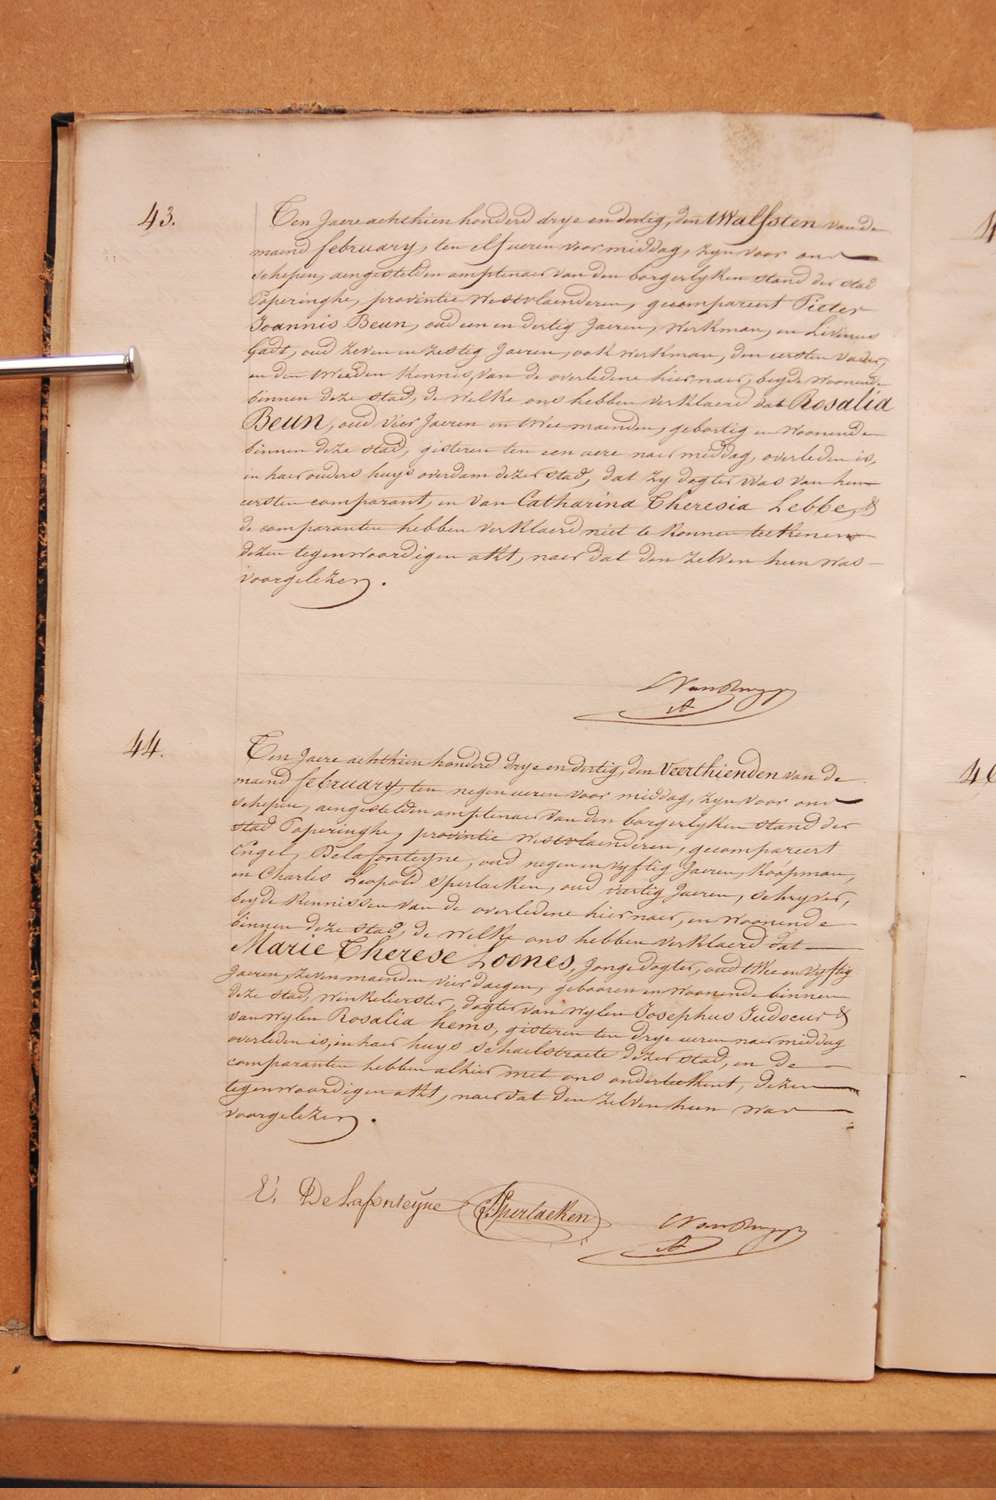 43.
Ten Jaere achthien honderd drye en dertig, den twalfsten van de
maend february, ten elf ueren voor middag, zyn voor ons
schepen, aengestelden amptenaer van den borgerlyken stand der stad
Poperinghe, provintie Westvlaenderen, gecompareert Pieter
Joannis Beun, oud een en dertig Jaeren, werkman, en Livinus
Gadt, oud zeven en zestig Jaeren, ook werkman, den eersten vader,
en den tweeden kennis, van de overledene hier naer, beyde woonende
binnen deze stad, de welke ons hebben verklaerd dat Rosalia
Beun, oud vier Jaeren en twee maenden, gebortig en woonende
binnen deze stad, gisteren ten een uere naer middag, overleden is,
in haer ouders huys overdam dezer stad, dat zy dogter was van hem
eersten comparant, en van Catharina Theresia Lebbe, &
de comparanten hebben verklaerd niet te konnen teekenen
dezen tegenwoordigen akt, naer dat den zelven hun was
voorgelezen.
44.
Ten Jaere achthien honderd drye en dertig, den Veerthienden van de
maend february, ten negen ueren voor middag, zyn voor ons
schepen, aengestelden amptenaer van den borgerlyken stand der
stad Poperinghe, provintie Westvlaenderen, gecompareert
Engel Delafonteyne, oud negen en vyftig Jaeren, koopman,
en Charles Leopold Sperlaeken, oud veertig Jaeren, schryver,
beyde kennissen van de overledene hier naer, en woonende
binnen deze stad, de welke ons hebben verklaerd dat
Marie Therese Loones, Jonge dogter, oud twee en vyftig
Jaeren, zeven maenden vier daegen, gebooren en woonende binnen
deze stad, winkelierster, dogter van wylen Josephus Judocus &
van wylen Rosalia hems, gisteren ten drye ueren naer middag
overleden is, in haer huys schaelstraete dezer stad, en de
comparanten hebben alhier met ons onderteekent, dezen
tegenwoordigen akt, naer dat den zelven hun was
voorgelezen.
E. De Lafonteyne Sperlaeken